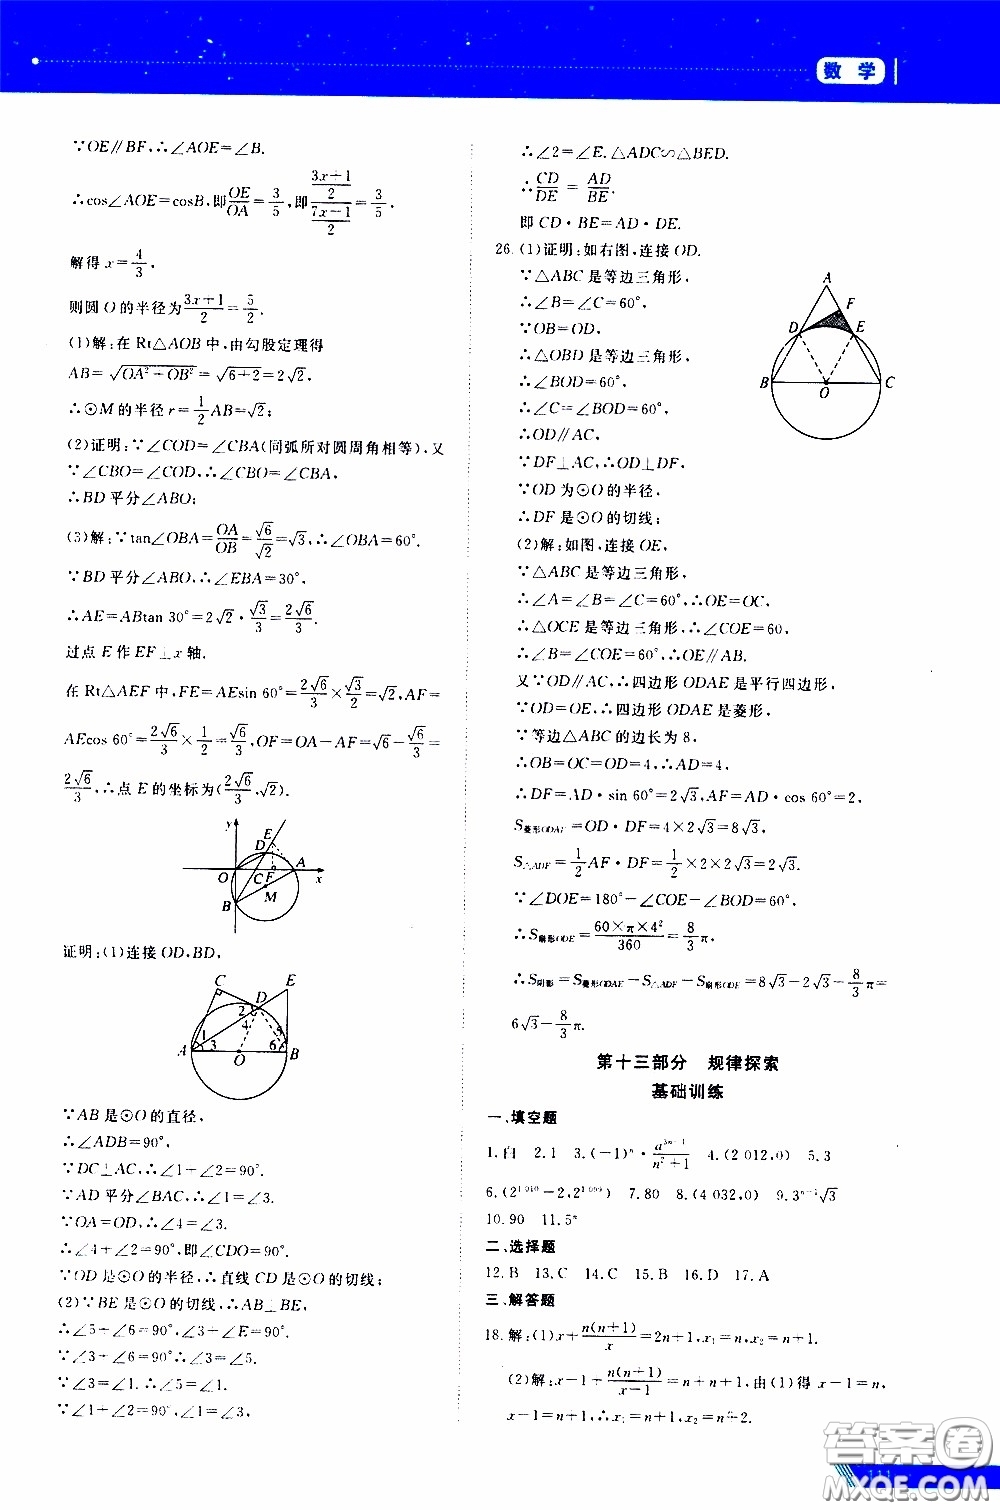 数 学
∵OE∥BF,∴∠AOE=∠B.
∴cos∠AOE=cosB,即OE/OA=3/5,即((3x+1)/2)/((7x-1)/2)=3/5.
解得x=4/3,
则圆O的半径为(3x+1)/2=5/2.
(1)解:在Rt△AOB中,由勾股定理得
AB=√(OA²+OB²)=√(6+2)=2√2.
∴⊙M的半径r=1/2AB=√2;
(2)证明:∵∠COD=∠CBA(同弧所对圆周角相等),又
∵∠CBO=∠COD,∴∠CBO=∠CBA.
∴BD平分∠ABO;
(3)解:∵tan∠OBA=OA/OB=√6/√2=√3,∴∠OBA=60°.
∵BD平分∠ABO,∴∠EBA=30°,
∴AE=ABtan 30°=2√2·√3/3=2√6/3.
过点E作EF⊥x轴.
在Rt△AEF中,FE=AEsin 60°=2√6/3×√3/2=√2,AF=
AEcos 60°=2√6/3×1/2=√6/3,OF=OA-AF=√6-√6/3=
2√6/3,∴点E的坐标为(2√6/3,√2).
y E D O C F A x M B
证明:(1)连接OD,BD,
C D E 2 4 1 3 5 6 A O B
∵AB是⊙O的直径,
∴∠ADB=90°,
∵DC⊥AC,∴∠1+∠2=90°,
∵AD平分∠BAC,∴∠1=∠3.
∵OA=OD,∴∠4=∠3.
∴∠4+∠2=90°,即∠CDO=90°,
∵OD是⊙O的半径,∴直线CD是⊙O的切线;
(2)∵BE是⊙O的切线,∴AB⊥BE,
∴∠5+∠6=90°,∠3+∠E=90°.
∵∠3+∠6=90°∴∠3=∠5.
∵∠3=∠1.∴∠5=∠1.
∵∠1+∠2=90°,∠5+∠E=90°,
∴∠2=∠E.△ADC∽△BED.
∴CD/DE=AD/BE.
即CD·BE=AD·DE.
26.(1)证明:如右图,连接OD.
∵△ABC是等边三角形,
∴∠B=∠C=60°,
∵OB=OD,
∴△OBD是等边三角形,
∴∠BOD=60°,
∴∠C=∠BOD=60°,
∴OD∥AC,
∵DF⊥AC,∴OD⊥DF,
∵OD为⊙O的半径,
∴DF是⊙O的切线;
A F D E B O C
(2)解:如图,连接OE,
∵△ABC是等边三角形,
∴∠A=∠B=∠C=60°,∴OE=OC,
∴△OCE是等边三角形,∴∠COE=60,
∴∠B=∠COE=60°,∴OE∥AB.
又∵OD∥AC,∴四边形ODAE是平行四边形,
∵OD=OE,∴四边形ODAE是菱形,
∵等边△ABC的边长为8,
∴OB=OC=OD=4,∴AD=4,
∴DF=AD·sin 60°=2√3,AF=AD·cos 60°=2,
S菱形ODAE=OD·DF=4×2√3=8√3,
S△ADF=1/2AF·DF=1/2×2×2√3=2√3.
∵∠DOE=180°-∠COE-∠BOD=60°,
∴S扇形ODE=60×π×4²/360=8/3π,
∴S阴影=S菱形ODAE-S△ADF-S扇形ODE=8√3-2√3-8/3π=
6√3-8/3π.
第十三部分 规律探索
基础训练
一、填空题
1.白 2.1 3.(-1)ⁿ·a³ⁿ⁻¹/(n²+1) 4.(2 012,0) 5.3
6.(2¹ ⁰¹⁰-2,2¹ ⁰⁰⁹) 7.80 8.(4 032,0) 9.3ⁿ⁻¹√3
10.90 11.5ⁿ
二、选择题
12.B 13.C 14.C 15.B 16.D 17.A
三、解答题
18.解:(1)x+n(n+1)/x=2n+1,x₁=n,x₂=n+1.
(2)解:x-1+n(n+1)/(x-1)=n+n+1,由(1)得 x-1=n,
x-1=n+1,∴x₁=n+1,x₂=n+2.
111
答案圈
MXQE.COM